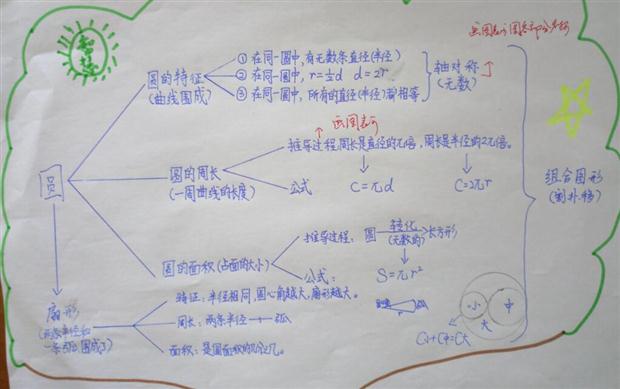 智慧
画图表示圆各部分名称
圆的特征
(曲线围成)
① 在同一圆中,有无数条直径(半径)
② 在同一圆中, r=½d d=2r
③ 在同一圆中, 所有的直径(半径)都相等
轴对称
(无数)
画图表示
圆的周长
(一周曲线的长度)
推导过程:周长是直径的π倍,周长是半径的2π倍。
公式 C=πd C=2πr
圆
组合图形
(割补移)
圆的面积(占面的大小)
推导过程: 圆 转化 长方形
(无数的)
公式: S=πr²
扇形
(两条半径和
一条弧围成)
特征:半径相同,圆心角越大,扇形越大。
周长:两条半径+一弧
面积:是圆面积的几分之几。
小 中
大
C小+C中=C大